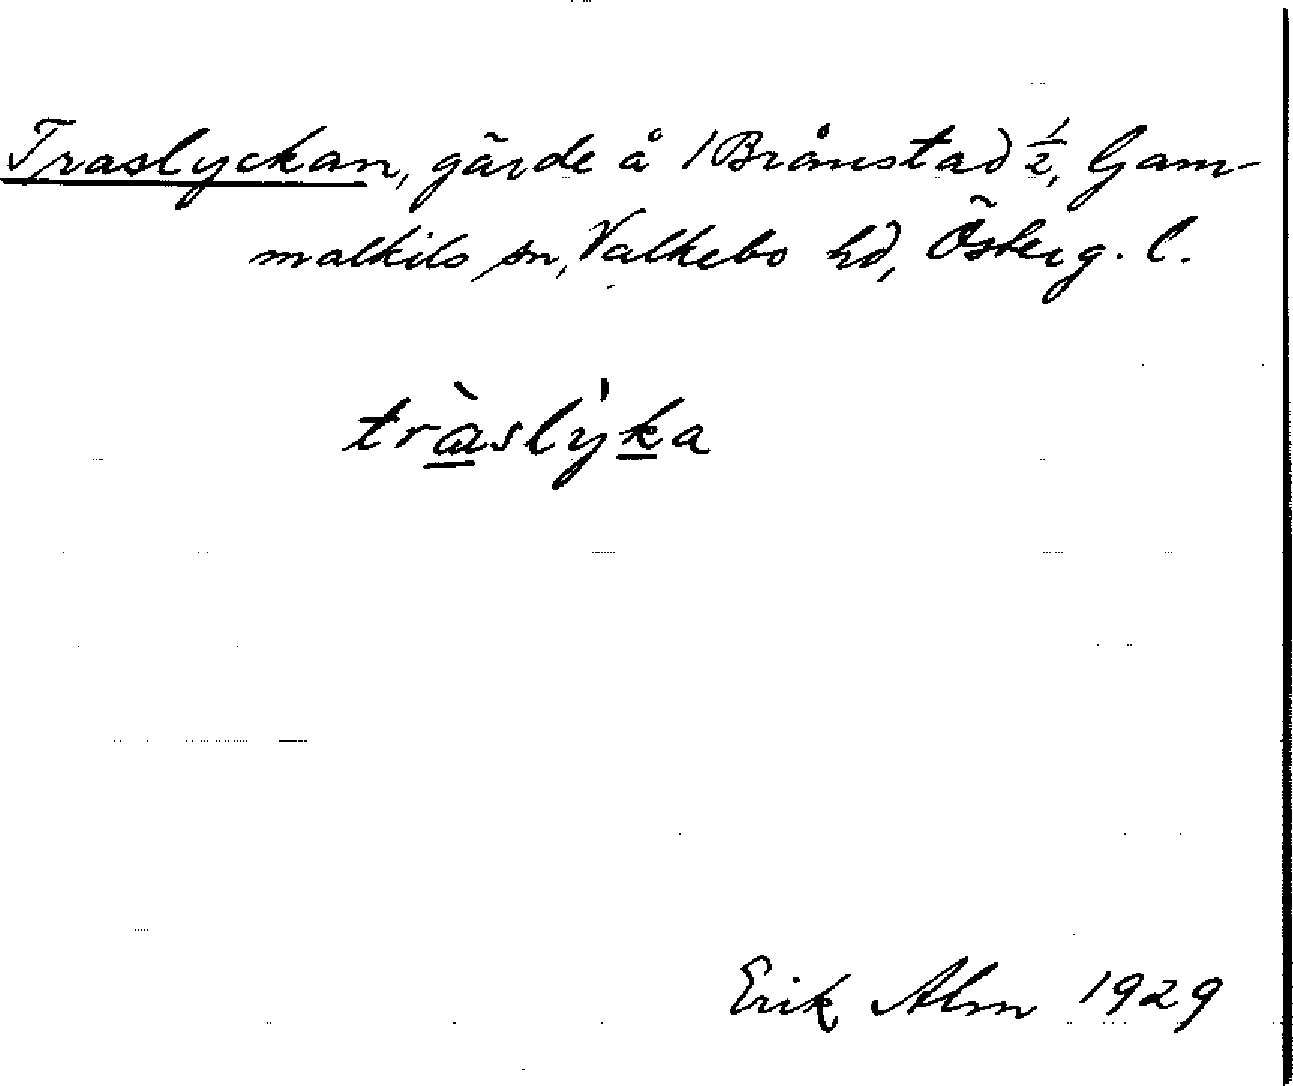 Traslyckan, gärde å /Brånstad ½, Gam-
malkils sn, Valkebo hd, Österg. l.
tràslýka
Erik Alm 1929